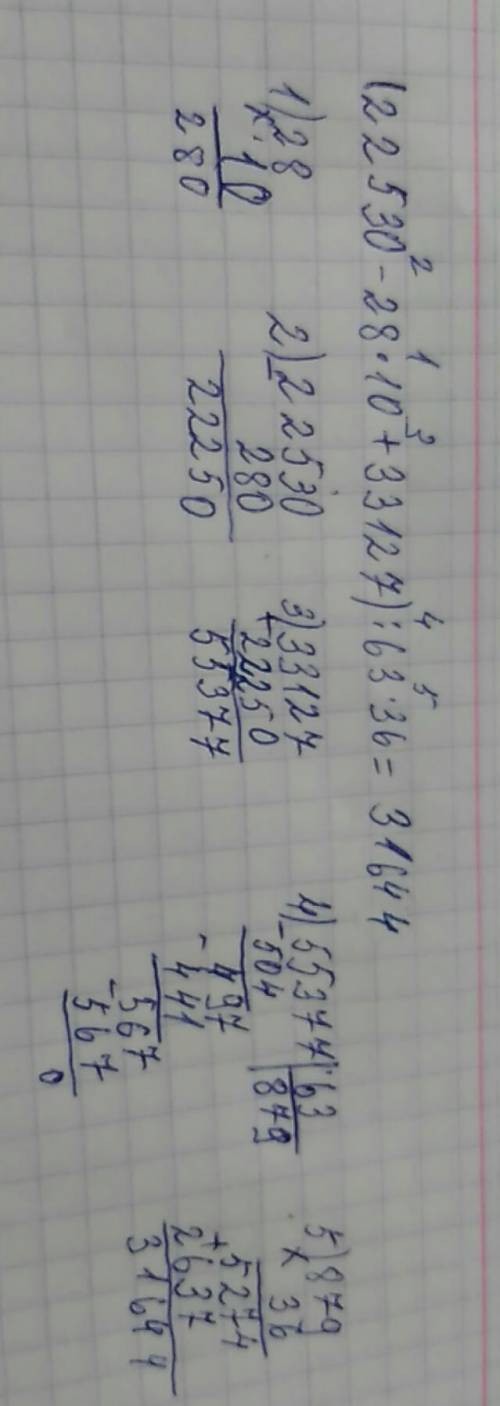 (22530 - 28 · 10 + 33127) : 63 · 36 = 31644
2 1 3 4 5
1) 28
x 10
280
2) 22530
- 280
22250
3) 33127
+ 22250
55377
4) 55377 | 63
- 504 | 879
497
- 441
567
- 567
0
5) 879
x 36
5274
+ 2637
31644